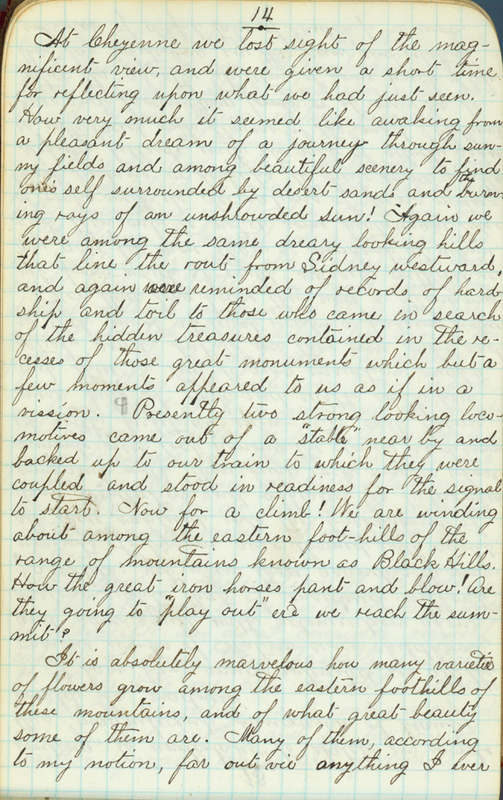 14
At Cheyenne we lost sight of the mag-
nificent view, and were given a short time
for reflecting upon what we had just seen.
How very much it seemed like awaking from
a pleasant dream of a journey through sun-
ny fields and among beautiful scenery to find
ones self surrounded by desert sands and the burn-
ing rays of an unshrowded sun! Again we
were among the same dreary looking hills
that line the rout from Sidney westward,
and again were reminded of records of hard
ship and toil to those who came in search
of the hidden treasures contained in the re-
cesses of those great monuments which but a
few moments appeared to us as if in a
vission. ¶ Presently two strong looking loco-
motives came out of a "stable" near by and
backed up to our train to which they were
coupled and stood in readiness for the signal
to start. Now for a climb! We are winding
about among the eastern foot-hills of the
range of mountains known as Black Hills.
How the great iron horses pant and blow! Are
they going to "play out" ere we reach the sum-
mit?
It is absolutely marvelous how many varieties
of flowers grow among the eastern foothills of
these mountains, and of what great beauty
some of them are. Many of them, according
to my notion, far out vie anything I ever